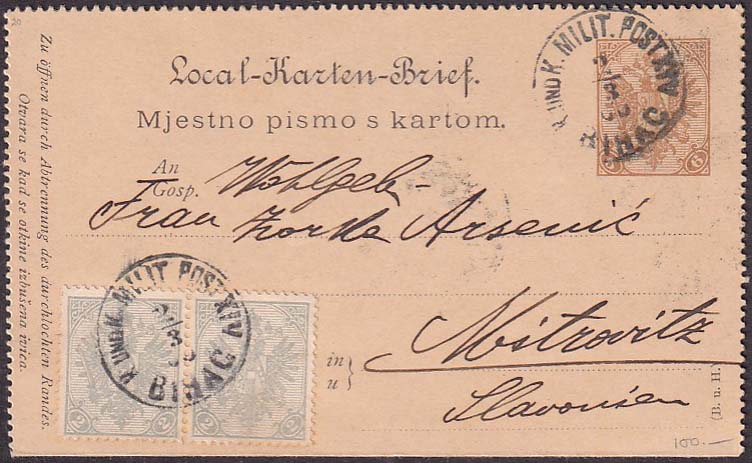 20
Zu öffnen durch Abtrennung des durchlochten Randes.
Otvara se kad se otkine izbušena ivica.
Local-Karten-Brief.
Mjestno pismo s kartom.
K. UND K. MILIT. POST XIV
BIHAC
6 6
An
Gosp.
Wohlgeb-
Frau Zorka Arsenić
K. UND K. MILIT. POST XIV
BIHAC
2 2 2 2
in
u
Mitrovitz
Slavonien
(B. u. H.)
100.-